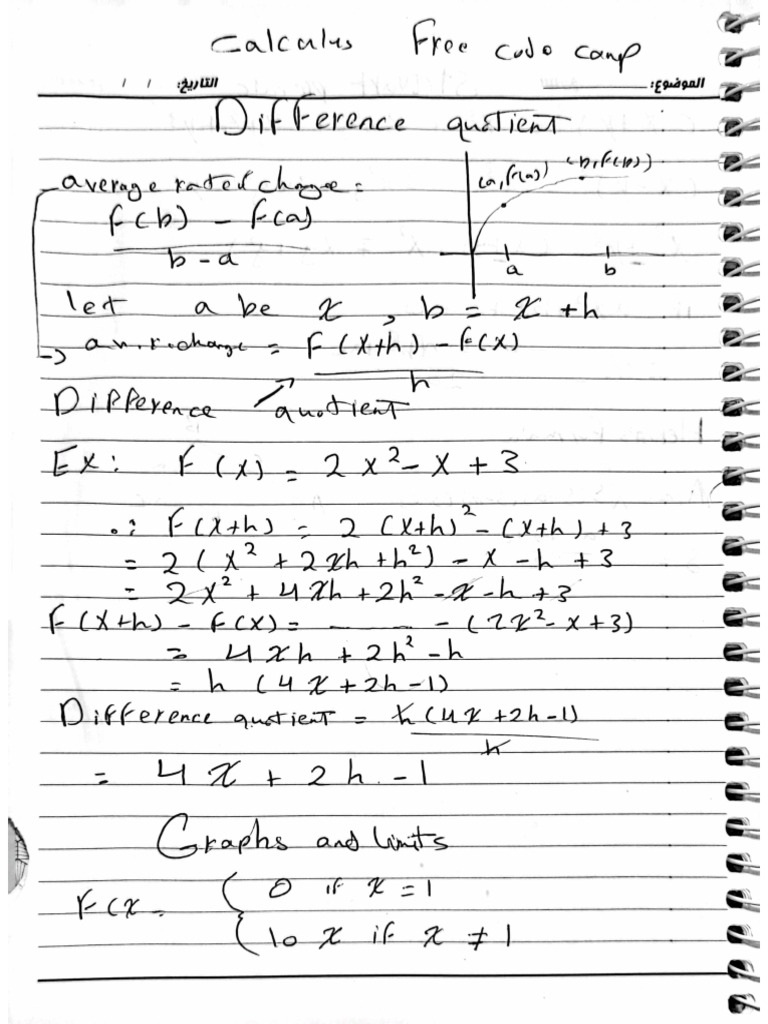 Calculus Free code camp
الموضوع: التاريخ: / /
Difference quotient
average rate of change =
f(b) - f(a)
b - a
(a, f(a)) (b, f(b))
a b
let a be x, b = x + h
-> av.r.change = F(x+h) - f(x)
h
Difference quotient
Ex: F(x) = 2x² - x + 3
∴ F(x+h) = 2(x+h)² - (x+h) + 3
= 2(x² + 2xh + h²) - x - h + 3
= 2x² + 4xh + 2h² - x - h + 3
F(x+h) - F(x) = ——— - (2x² - x + 3)
= 4xh + 2h² - h
= h (4x + 2h - 1)
Difference quotient = h(4x + 2h - 1)
h
= 4x + 2h - 1
Graphs and limits
F(x = { 0 if x = 1
{ 10 x if x ≠ 1